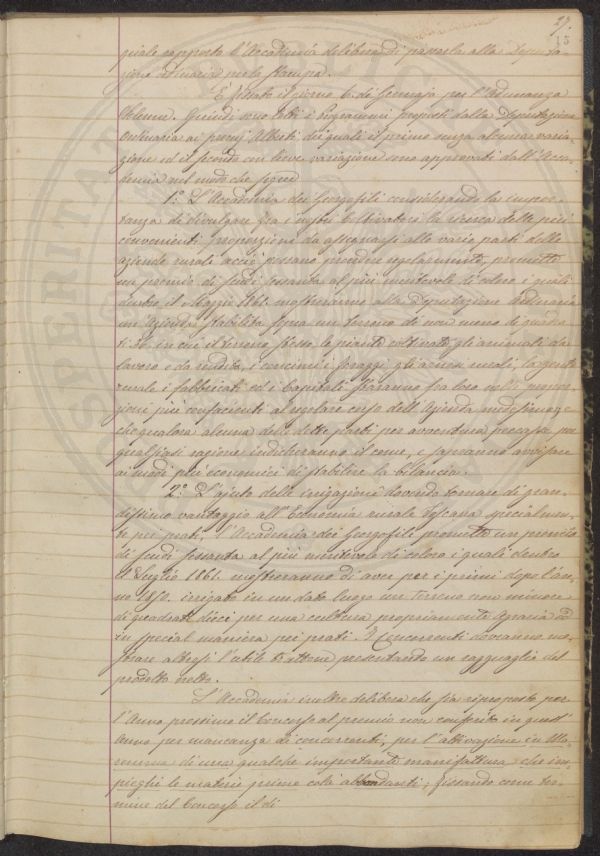 27.
15
quale rapporto l'Accademia delibera di passarla alla Deputa-
zione ordinaria per la stampa.
È fissato il giorno 6. di Gennajo per l'Adunanza
Solenne. Quindi sono letti i Programmi proposti dalla Deputazione
Ordinaria ai premj Alberti dei quali il primo senza alcuna varia-
zione ed il secondo con lieve variazione sono approvati dall'Acca-
demia nel modo che segue
1º. L'Accademia dei Georgofili considerando la impor-
tanza di divulgare fra i nostri Coltivatori la ricerca delle più
convenienti proporzioni da assegnarsi alle varie parti delle
aziende rurali acciò possano procedere regolarmente, promette
un premio di Scudi sessanta al più meritevole di coloro i quali
dentro il Maggio 1861. mostreranno alla Deputazione Ordinaria
un'Azienda stabilita sopra un terreno di non meno di quadra-
ti in cui il terreno stesso, le piante coltivate, gli animali da
lavoro e da rendita, i concimi, i foraggi, gli arnesi rurali, la gente
rurale, i fabbricati ed i Capitali staranno fra loro nelle propor-
zioni più confacienti al regolare corso dell'Azienda medesima; e
che qualora alcuna delle dette parti per avventura peccasse per
qualsiasi ragione indicheranno il come, e sapranno avvisare
ai modi più economici di stabilire la bilancia.
2º. L'ajuto delle irrigazioni dovendo tornare di gran-
dissimo vantaggio all'Economia rurale Toscana specialmen-
te pei prati, l'Accademia dei Georgofili promette un premio
di Scudi sessanta al più meritevole di coloro i quali dentro
il Luglio 1861. mostreranno di aver per i primi dopo l'an-
no 1850. irrigato in un dato luogo un terreno non minore
di quadrati dieci per una cultura propriamente agraria ed
in special maniera pei prati. I Concorrenti dovranno mo-
strare altresì l'utile ottenuto presentando un ragguaglio del
prodotto
L'Accademia inoltre delibera che sia riproposto per
l'Anno prossimo il Concorso al premio non conferito in quest'
Anno per mancanza di concorrenti, per l'attivazione in Ma-
remma di una qualche importante manifattura che im-
pieghi le materie prime colà abbondanti, fissando come ter-
mine del Concorso il dì